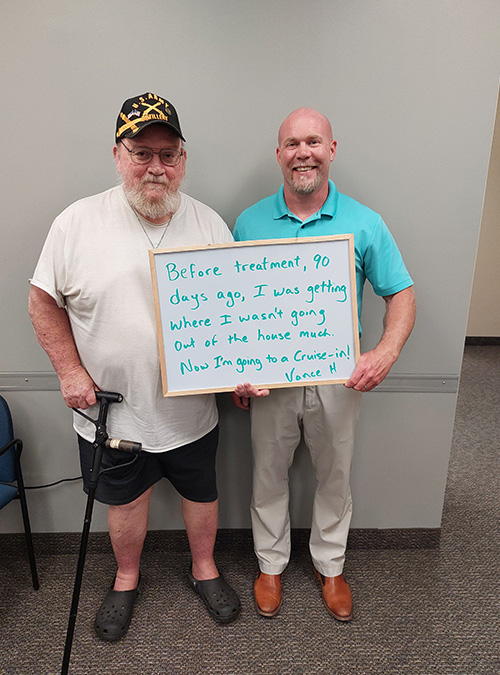 U.S. ARMY
ARTILLERY
Before treatment, 90
days ago, I was getting
where I wasn't going
out of the house much.
Now I'm going to a Cruise-in!
Vance H